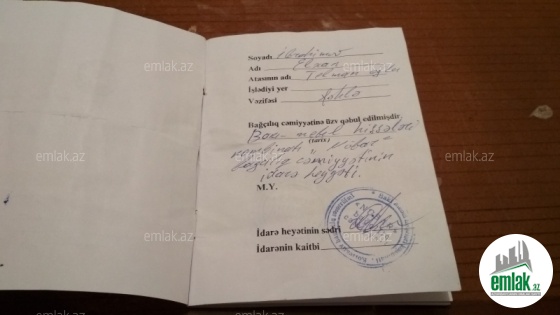 Soyadı İbrahimov
Adı Elxan
Atasının adı Telman oğlu
İşlədiyi yer
Vəzifəsi fəhlə
Bağçılıq cəmiyyətinə üzv qəbul edilmişdir
Bakı mebel hissələri
(tarix)
kombinatı "Nübar"
bağçılıq cəmiyyətinin
idarə heyyəti.
M.Y.
İdarə heyətinin sədri
İdarənin katibi
emlak.az
emlak.az
emlak.az
emlak.az
emlak.az
emlak.az
emlak.az
emlak.az
emlak.az